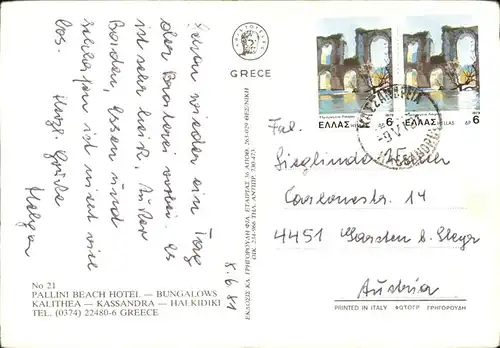 Schon wieder ein Tag
der Braterei vorbei. Es
ist sehr heiß. Außer
Baden, Essen und
schlafen ist nicht viel
los.
Herzl. Grüße
Helga
8. 6. 81
No 21
PALLINI BEACH HOTEL — BUNGALOWS
KALITHEA — KASSANDRA — HALKIDIKI
TEL. (0374) 22480-6 GREECE
GREECE
ΕΛΛΑΣ
HELLAS
6
ΕΛΛΑΣ
HELLAS
6
Fal.
Sieglinde
Carlonestr. 14
4451 Garsten b. Steyr
Austria
PRINTED IN ITALY ΦΩΤΟΓΡ ΓΡΗΓΟΡΙΑΔΗ